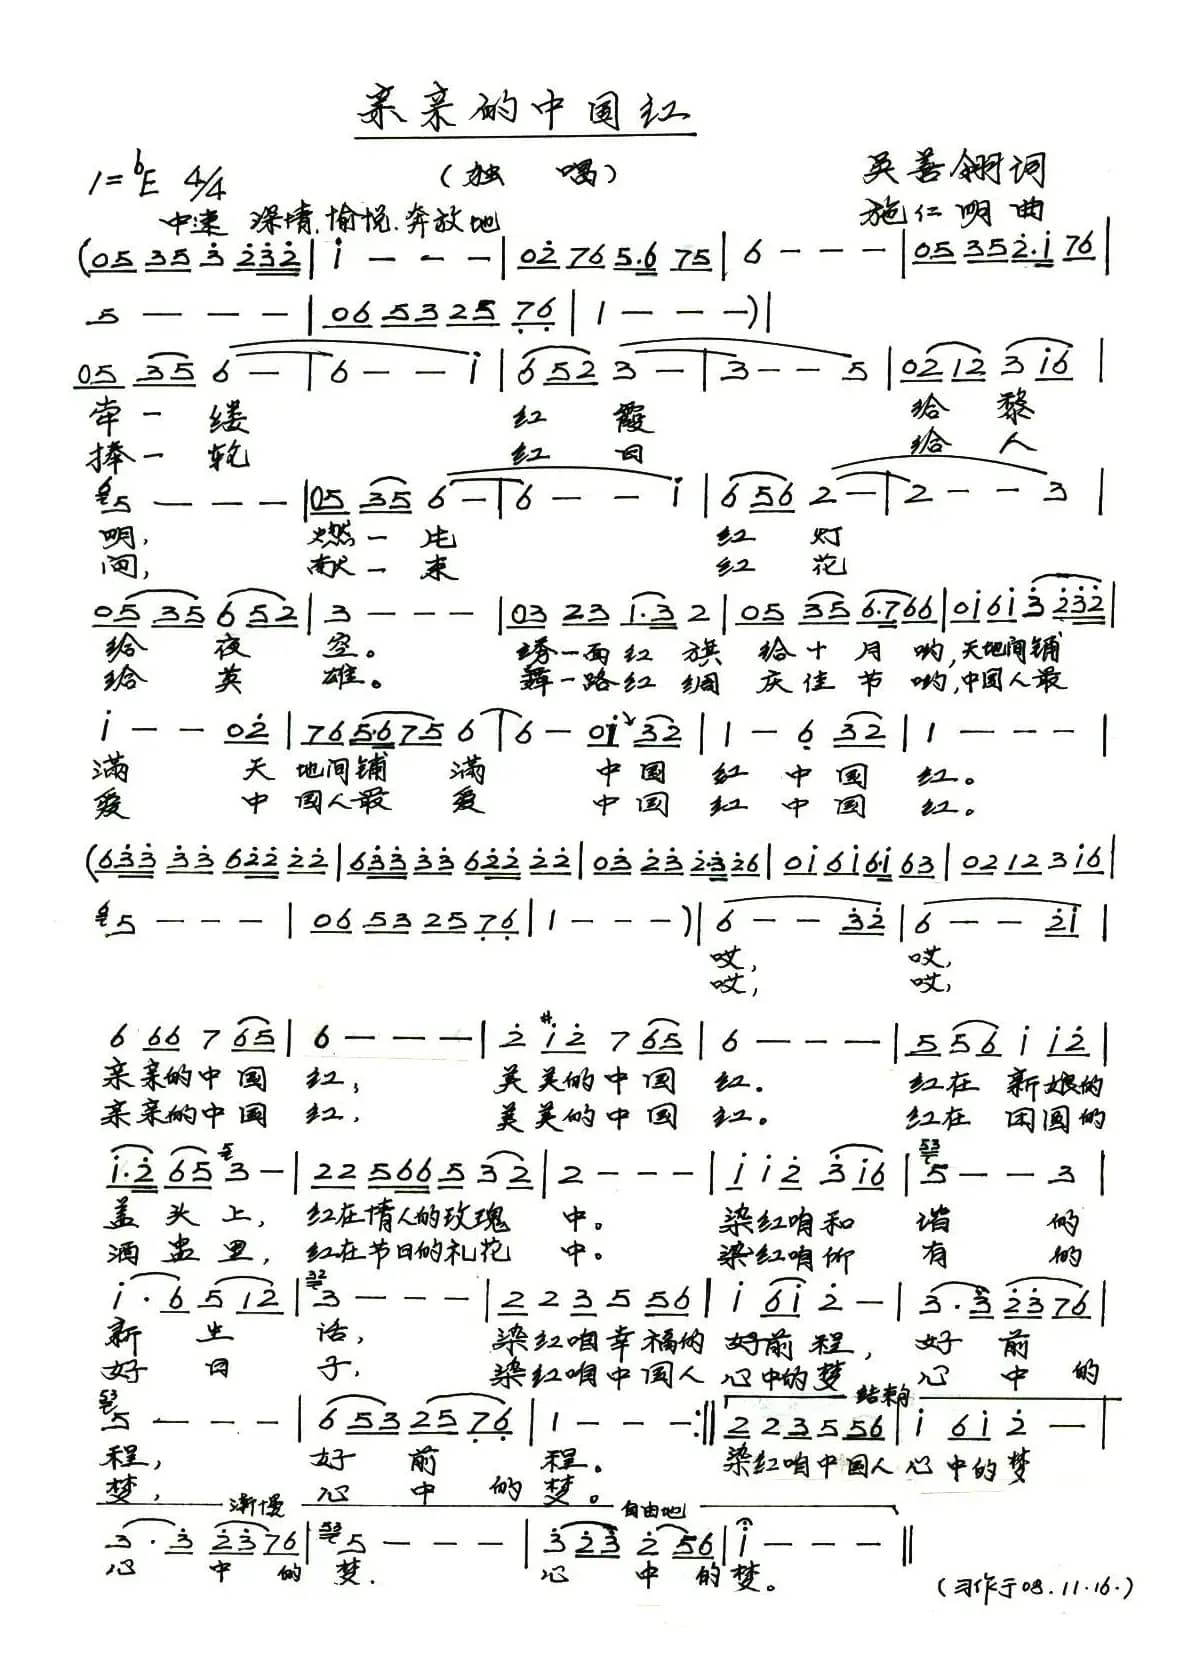 亲亲的中国红
(独 唱)
1=♭E 4/4
吴善翎词
中速 深情.愉悦.奔放地
施仁明曲
(05 35 3̇ 2̇3̇2̇|1̇ - - -|02̇ 76 5.6 75|6 - - -|05 352̇.1̇ 76|
5 - - -|06 53 25 7̣6̣|1 - - -)|
05 35 6 -|6 - - 1̇|652 3 -|3 - - 5|0212 3 1̇6|
牵一缕 红霞 给黎
捧一轮 红日 给人
6 5 - - -|05 35 6 -|6 - - 1̇|656 2 -|2 - - 3|
明, 燃一片 红灯
间, 献一束 红花
05 35 652|3 - - -|03 23 1.3 2|05 35 6.766|01̇61̇3̇ 2̇3̇2̇|
给夜空。 绣一面红旗 给十月哟,天地间铺
给英雄。 舞一路红绸 庆佳节哟,中国人最
1̇ - - 02̇|765.675 6|6 - 01̇ 32|1 - 6̣ 32|1 - - -|
满 天地间铺满 中国红中国红。
爱 中国人最爱 中国红中国红。
(63̇3̇ 3̇3̇ 62̇2̇ 2̇2̇|63̇3̇ 3̇3̇ 62̇2̇ 2̇2̇|03̇ 2̇3̇ 2̇3̇2̇6|01̇61̇6.1̇ 63|02123 1̇6|
6 5 - - -|06 53 25 7̣6̣|1 - - -)|6 - - 3̇2̇|6 - - 2̇1̇|
哎, 哎,
哎, 哎,
6 66 7 65|6 - - -|2̇ #1̇2̇ 7 65|6 - - -|556 1̇ 1̇2̇|
亲亲的中国红, 美美的中国红. 红在新娘的
亲亲的中国红, 美美的中国红。 红在团圆的
1̇.2̇ 65 5 3 -|225665 32|2 - - -|1̇ 1̇2̇ 3̇1̇6|53 5 - - 3|
盖头上,红在情人的玫瑰中。 染红咱和谐的
酒盅里,红在节日的礼花中。 染红咱所有的
1̇.6 512|32 3 - - -|2 23 5 56|1̇ 61̇ 2̇ -|3.3̇ 2̇3̇76|
新生话, 染红咱幸福的好前程,好前
好日子, 染红咱中国人心中的梦 心中的
53 5 - - -|653 257̣6̣|1 - - -:‖ 结束句 2 23 5 56|1̇ 61̇ 2̇ -|
程, 好前程。 染红咱中国人心中的梦
梦, 心中的梦。
渐慢 自由地
3.3̇ 2̇3̇76|53 5 - - -|3̇2̇3̇ 2̇.56|1̇ - - -‖
心中的梦. 心中的梦。
(习作于08.11.16.)